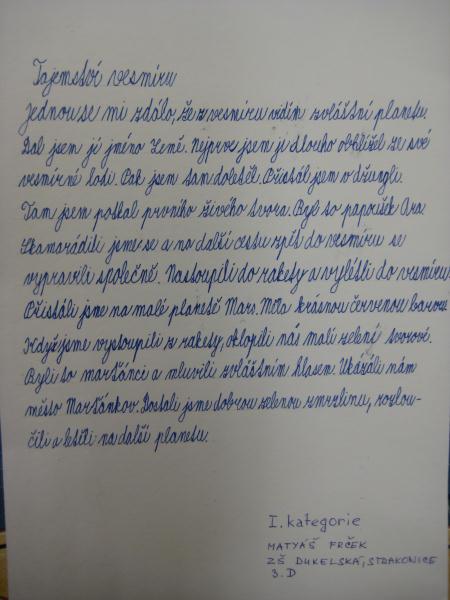 Tajemství vesmíru
Jednou se mi zdálo, že z vesmíru vidím zvláštní planetu.
Dal jsem jí jméno Země. Nejprve jsem ji dlouho obhlížel ze své
vesmírné lodi. Pak jsem tam doletěl. Přistál jsem v džungli.
Tam jsem potkal prvního živého tvora. Byl to papoušek Ara.
Skamarádili jsme se a na další cestu zpět do vesmíru se
vypravili společně. Nastoupili do rakety a vylétli do vesmíru.
Přistáli jsme na malé planetě Mars. Měla krásnou červenou barvu.
Když jsme vystoupili z rakety, oklopili nás malí zelení tvorové.
Byli to marťánci a mluvili zvláštním hlasem. Ukázali nám
město Marťánkov. Dostali jsme dobrou zelenou zmrzlinu, rozlou-
čili a letěli na další planetu.
I. kategorie
MATYÁŠ FRČEK
ZŠ DUKELSKÁ, STRAKONICE
3. D